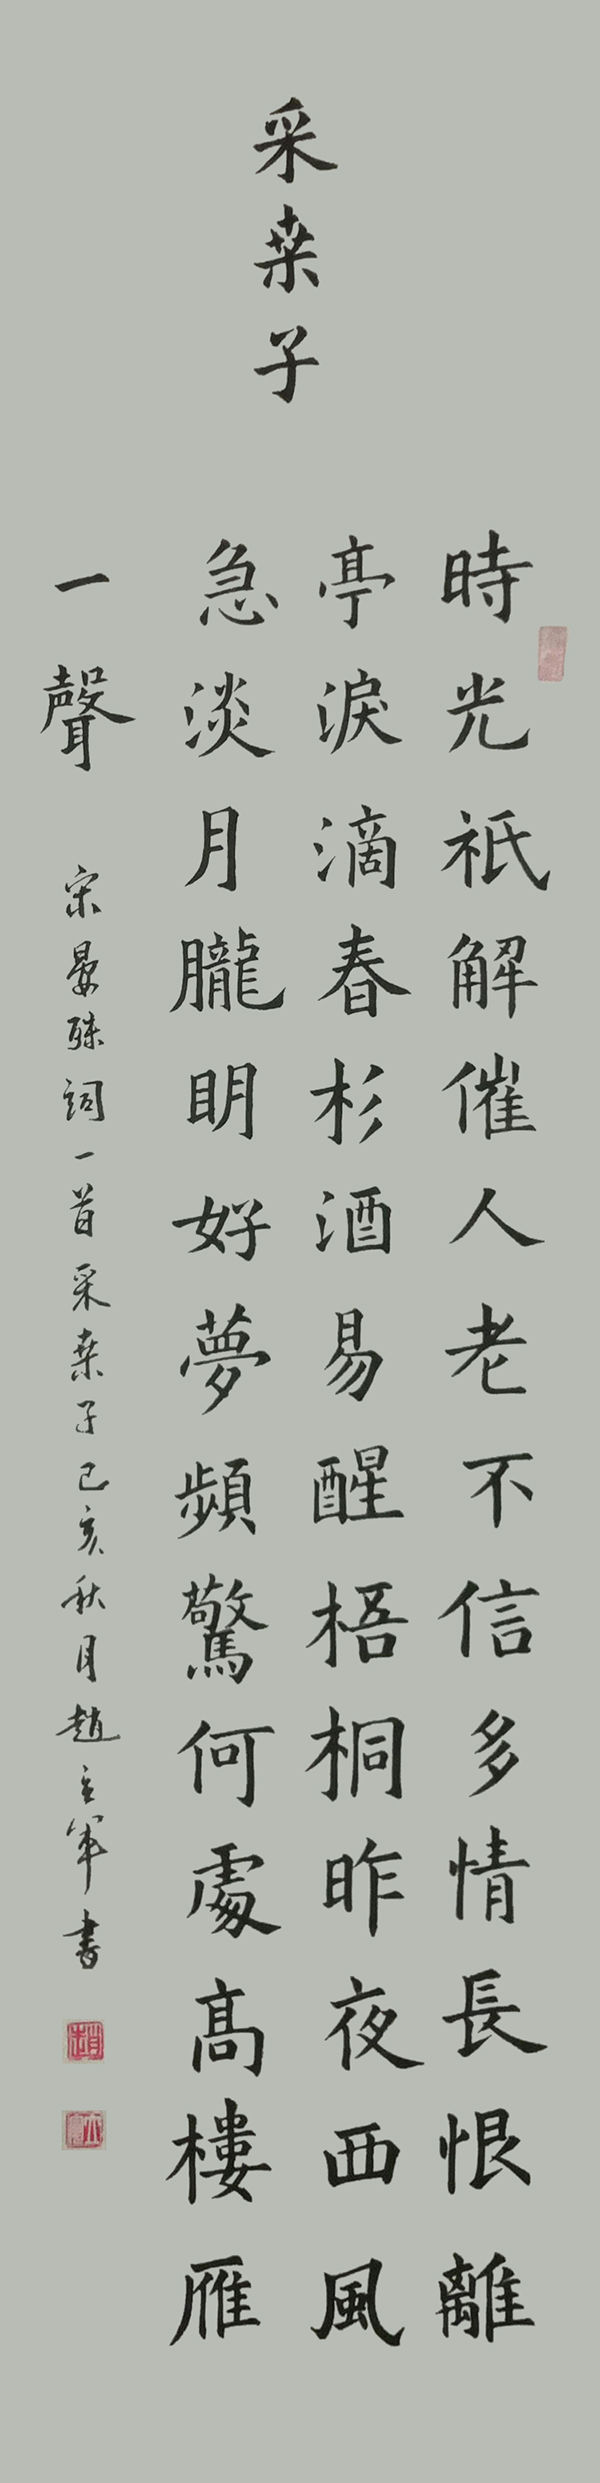 采桒子
時光祇解催人老不信多情長恨離
亭淚滴春杉酒易醒梧桐昨夜西風
急淡月朧明好夢頻驚何處高樓雁
一聲
宋晏殊詞一首采桒子己亥秋月趙立軍書